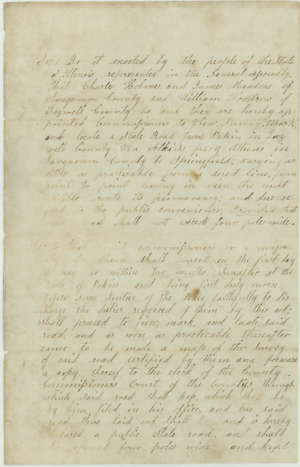 Sec 1 Be it enacted by the people of the State
of Illinois represented in the General Assembly,
That Charles Holmes and James Meadows of
Sangamon County, and William Woodrow of
Tazwell County be and they are hereby ap
pointed Commissioners to View, Survey, Mark,
and locate a State Road from Pekin in Taz
well County Via Adkins' ferry, Athens in
Sangamon County to Springfield; varying as
little as practicable from a direct line, from
point to point having in view the most
eligible route its permanancy; and due re
gard to the public convenience, Provided that
road shall not exceed four poles wide.
commissioners or a major
of them shall meet on the first day
may or within two months thereafter at the
town of Pekin and being first duly sworn
before some Justice of the Peace faithfully to dis
charge the duties required of them by this act;
shall proceed to view, mark, and locate said
road; and as soon as practicable thereafter
cause to be made a map of the survey
of said road certified by them and forward
a copy thereof to the clerk of the County
Commissioners Court of the Countys through
which said road shall pass, which shall be
by him filed in his office, and the said
road thus laid out shall be and is hereby
declared a public State road, and shall
be opened four poles wide and kept